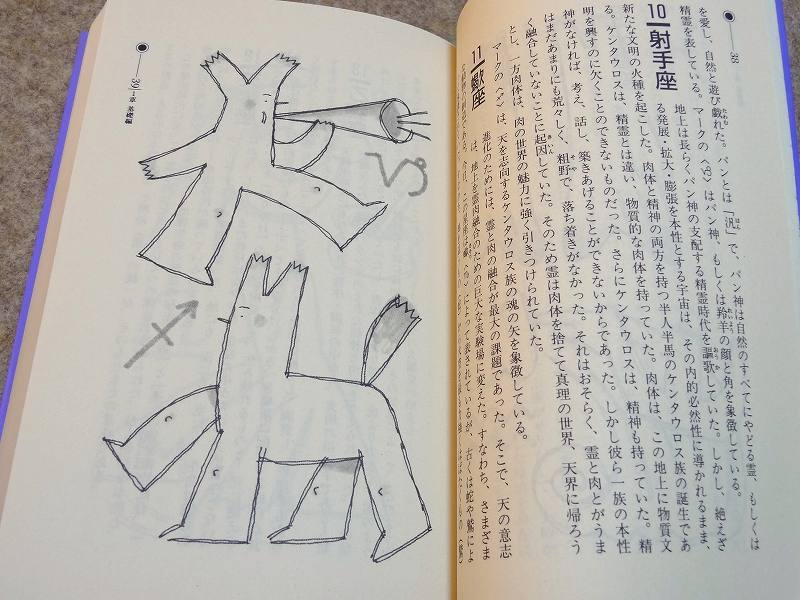 38
を愛し、自然と遊び戯れた。パンとは「汎」で、パン神は自然のすべてにやどる霊、もしくは
精霊を表している。マークの〈♑〉はパン神、もしくは羚羊の顔と角を象徴している。
地上は長らくパン神の支配する精霊時代を謳歌していた。しかし、絶えざ
10 射手座
る発展・拡大・膨張を本性とする宇宙は、その内的必然性に導かれるまま、
新たな文明の火種を起こした。肉体と精神の両方を持つ半人半馬のケンタウロス族の誕生であ
る。ケンタウロスは、精霊とは違い、物質的な肉体を持っていた。肉体は、この地上に物質文
明を興すのに欠くことのできないものだった。さらにケンタウロスは、精神も持っていた。精
神がなければ、考え、話し、築きあげることができないからであった。しかし彼ら一族の本性
はまだあまりにも荒々しく、粗野で、落ち着きがなかった。それはおそらく、霊と肉とがうま
く融合していないことに起因していた。そのため霊は肉体を捨てて真理の世界、天界に帰ろう
とし、一方肉体は、肉の世界の魅力に強く引きつけられていた。
マークの〈♐〉は、天を志向するケンタウロス族の魂の矢を象徴している。
進化のためには、霊と肉の融合が最大の課題であった。そこで、天の意志
11 蠍座
は、地上を霊肉融合のための巨大な実験場に変えた。すなわち、さまざま
39